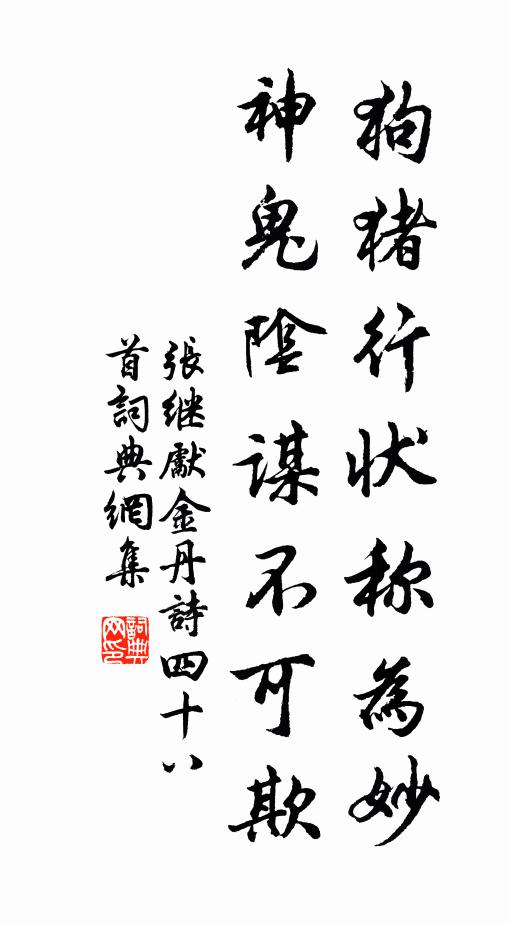 狗猪行状称為妙
神鬼陰謀不可欺
張继獻金丹詩四十八
首詞典網集
詞典网印